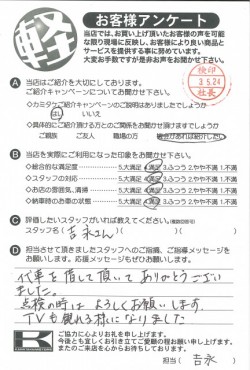 軽
お客様アンケート
当店では、お買い上げ頂いたお客様の声を可能
な限り現場に反映し、お客様により良い商品と
サービスを提供する事に努めています。
大変お手数ですが是非お声をお聞かせ下さい。
検印
3.5.24
社長
A 当店はご紹介を大切にしております。
ご紹介キャンペーンについてお聞かせ下さい。
◇カミタケご紹介キャンペーンのご説明はありましたでしょうか
はい いいえ
◇具体的にご紹介頂ける方とのご関係をお聞かせ頂けますでしょうか
ご親族 ご友人 職場の方 機会があれば紹介したい
B 当店を実際にご利用になった印象をお聞かせ下さい。
◇総合的な満足度 5.大満足 4.満足 3.ふつう 2.やや不満 1.不満
◇スタッフの対応 5.大満足 4.満足 3.ふつう 2.やや不満 1.不満
◇お店の雰囲気、清掃 5.大満足 4.満足 3.ふつう 2.やや不満 1.不満
◇納車時のお車の状態 5.大満足 4.満足 3.ふつう 2.やや不満 1.不満
C 評価したいスタッフがいれば教えてください。(複数回答可)
スタッフ名( 吉永さん )
D 担当させて頂きましたスタッフへのご指摘、ご指導メッセージを
お願いします。応援メッセージもぜひお願いします。
代車を貸して頂いて ありがとうござい
ました。
点検の時は よろしくお願いします。
TVも観れる様になりました
ご協力に心よりお礼を申し上げます。
今後とも宜しくお引き立てご愛顧の程お願い申し上げます。
またのご来店を心からお待ちしております。
担当( 吉永 )